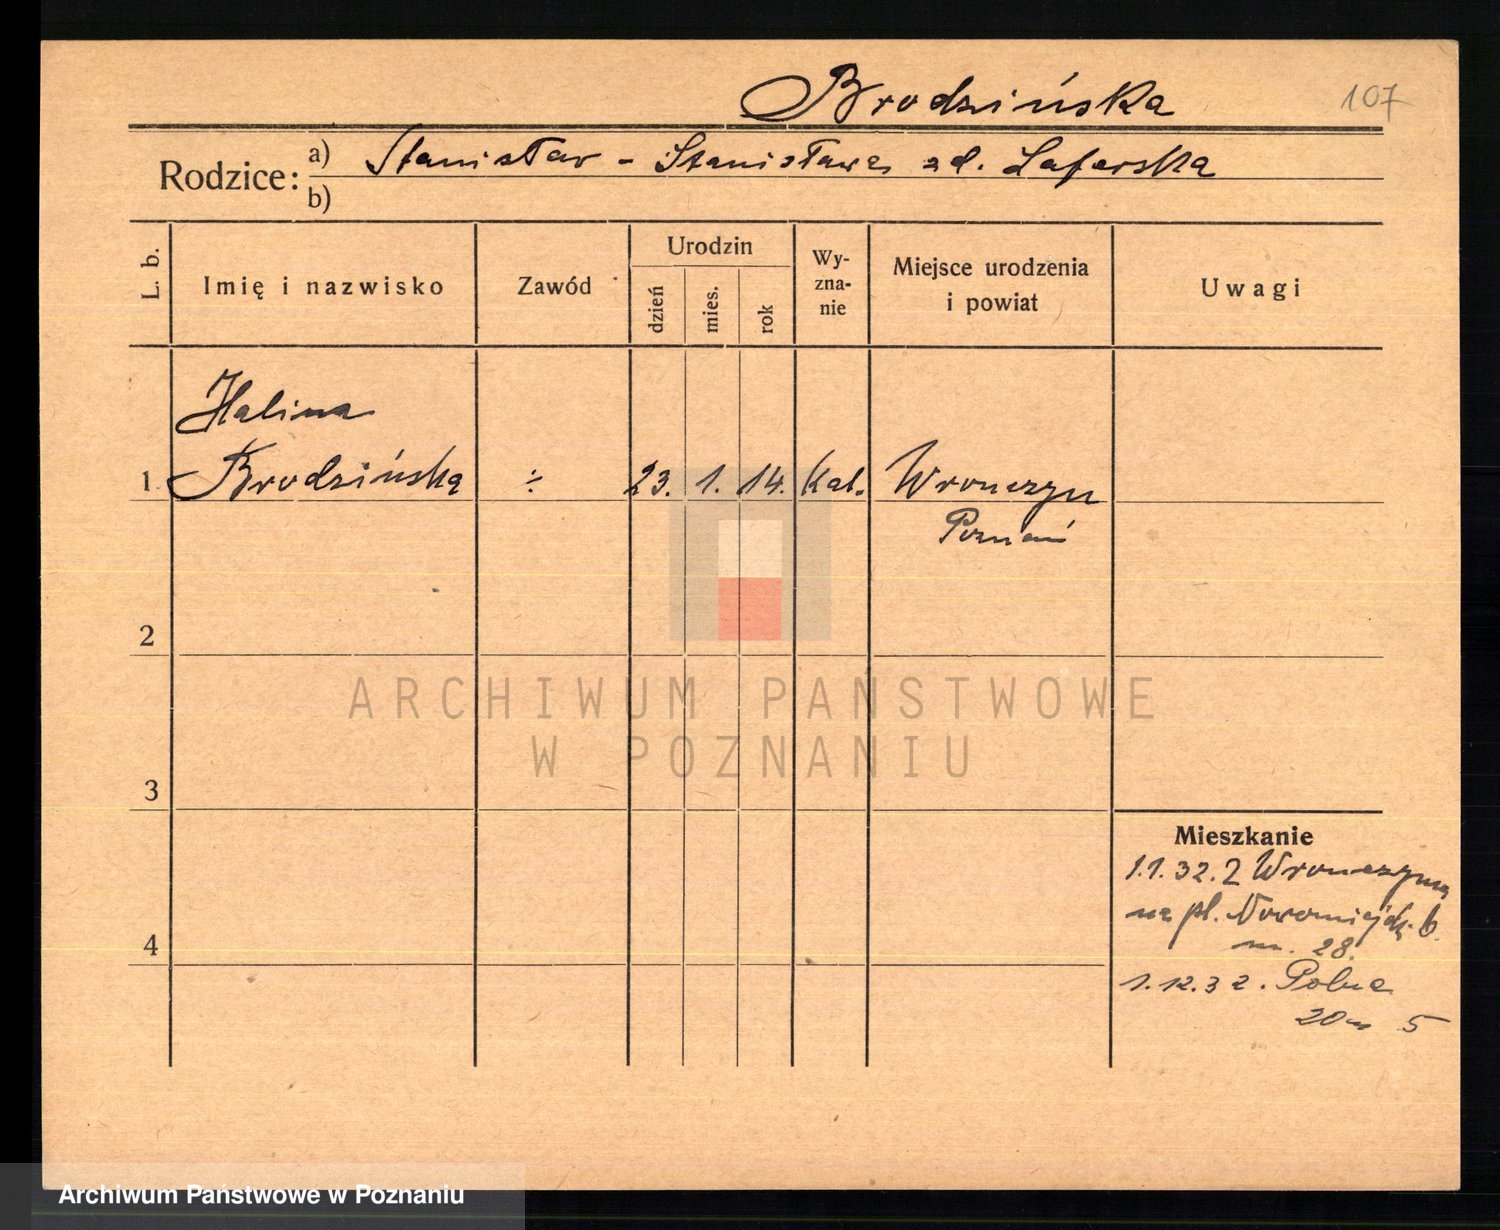 Brodzińska
107
Rodzice: a) Stanisław - Stanisława zd. Laferska
b)
L. b.
Imię i nazwisko
Zawód
Urodzin
dzień
mies.
rok
Wy-
zna-
nie
Miejsce urodzenia
i powiat
Uwagi
Halina
1. Brodzińska ÷ 23. 1. 14. Kat. Wronczyn
Poznań
2
ARCHIWUM PAŃSTWOWE
W POZNANIU
3
4
Mieszkanie
1.1.32. Z Wronczyna
na pl. Nowomiejski
m. 28.
1.12.32. Polna
20 m 5
Archiwum Państwowe w Poznaniu